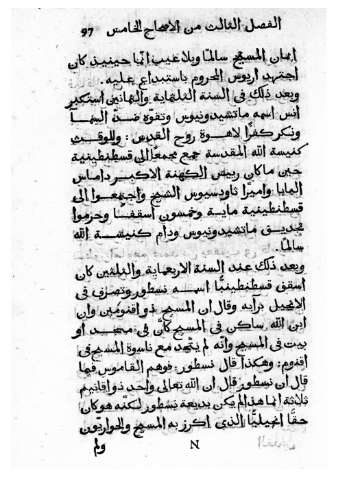 الفصل الثالث من الاصحاح الخامس 97
ايمان المسيح سالمًا وبلا عيب انما حينيذ كان
اجتهد اريوس المحروم باستبداع عليه.
وبعد ذلك في السنة الثلثماية والثمانين استكبر
انس اسمه ماتشيدونيوس وتفوه ضد
ونكر كفرًا لاهوة روح القدس : وللوقت
كنيسة الله المقدسة جمع مجمعًا الى قسطنطينية
حين ماكان رييس الكهنة الاكبر داماس
البابا واميرًا ثاودسيوس الشيخ واجتمعوا الى
قسطنطينية ماية وخمسون اسقفنًا وحرموا
تجديف ماتشيدونيوس ودام كنيسة الله
سالمًا.
وبعد ذلك عند السنة الاربعماية والثلثين كان
اسقف قسطنطينيًا اسمه نسطور وتصرف في
الانجيل برآيه وقال ان المسيح ذو اقنومين وان
ابن الله ساكن في المسيح كأن في معبد او
بيت في المسيح وانه لم يتحد مع ناسوة المسيح في
اقنوم: وهكذا قال نسطور: فوهم القاموس فيما
قال ان نسطور قال ان الله تعالى واحد ذو اقانيم
ثلاثة انما هذا لم يكن بدعة نسطور لكنه هو كان
حقا انجيليًا الذي اكرز به المسيح والحواريون
N ولم